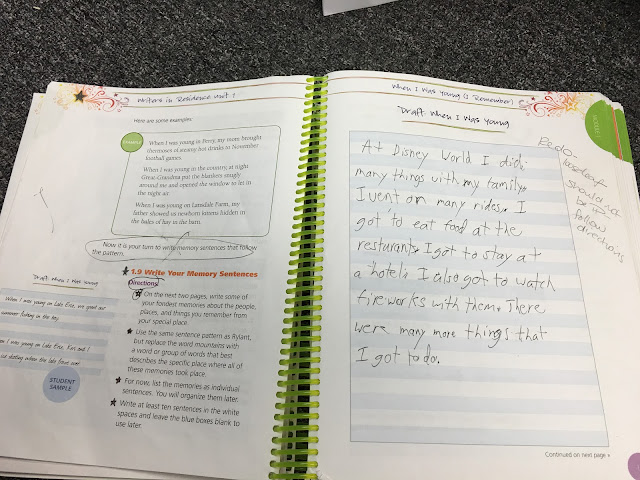 Writers in Residence Unit 1
Here are some examples:
EXAMPLE
When I was young in Perry, my mom brought
thermoses of steamy hot drinks to November
football games.
When I was young in the country, at night
Great-Grandma put the blankets snugly
around me and opened the window to let in
the night air.
When I was young on Lansdale Farm, my
father showed us newborn kittens hidden in
the bales of hay in the barn.
Now it is your turn to write memory sentences that follow
the pattern.
1.9 Write Your Memory Sentences
Directions:
On the next two pages, write some of
your fondest memories about the people,
places, and things you remember from
your special place.
Use the same sentence pattern as Rylant,
but replace the word mountains with
a word or group of words that best
describes the specific place where all of
these memories took place.
For now, list the memories as individual
sentences. You will organize them later.
Write at least ten sentences in the white
spaces and leave the blue boxes blank to
use later.
Draft: When I Was Young
When I was young on Lake Erie, we spent our
summer fishing in the bay.
I was young on Lake Erie, Kari and I
skating when the lake froze over
STUDENT
SAMPLE
When I Was Young (I Remember)
Draft: When I Was Young
MODULE
At Disney World I did
many things with my family.
I went on many rides. I
got to eat food at the
resturant. I got to stay at
a hotel. I also got to watch
fireworks with them. There
were many more things that
I got to do.
Redo-
looseleaf
should
be
follow
directions
Continued on next page